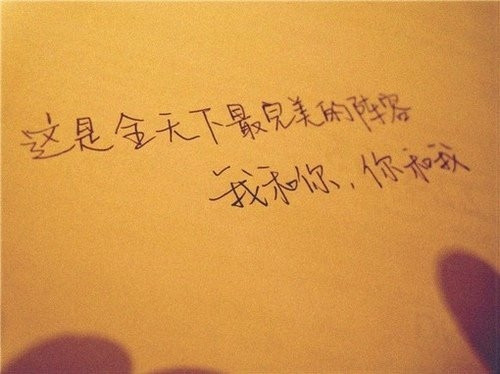 这是全天下最完美的阵容
我和你，你和我